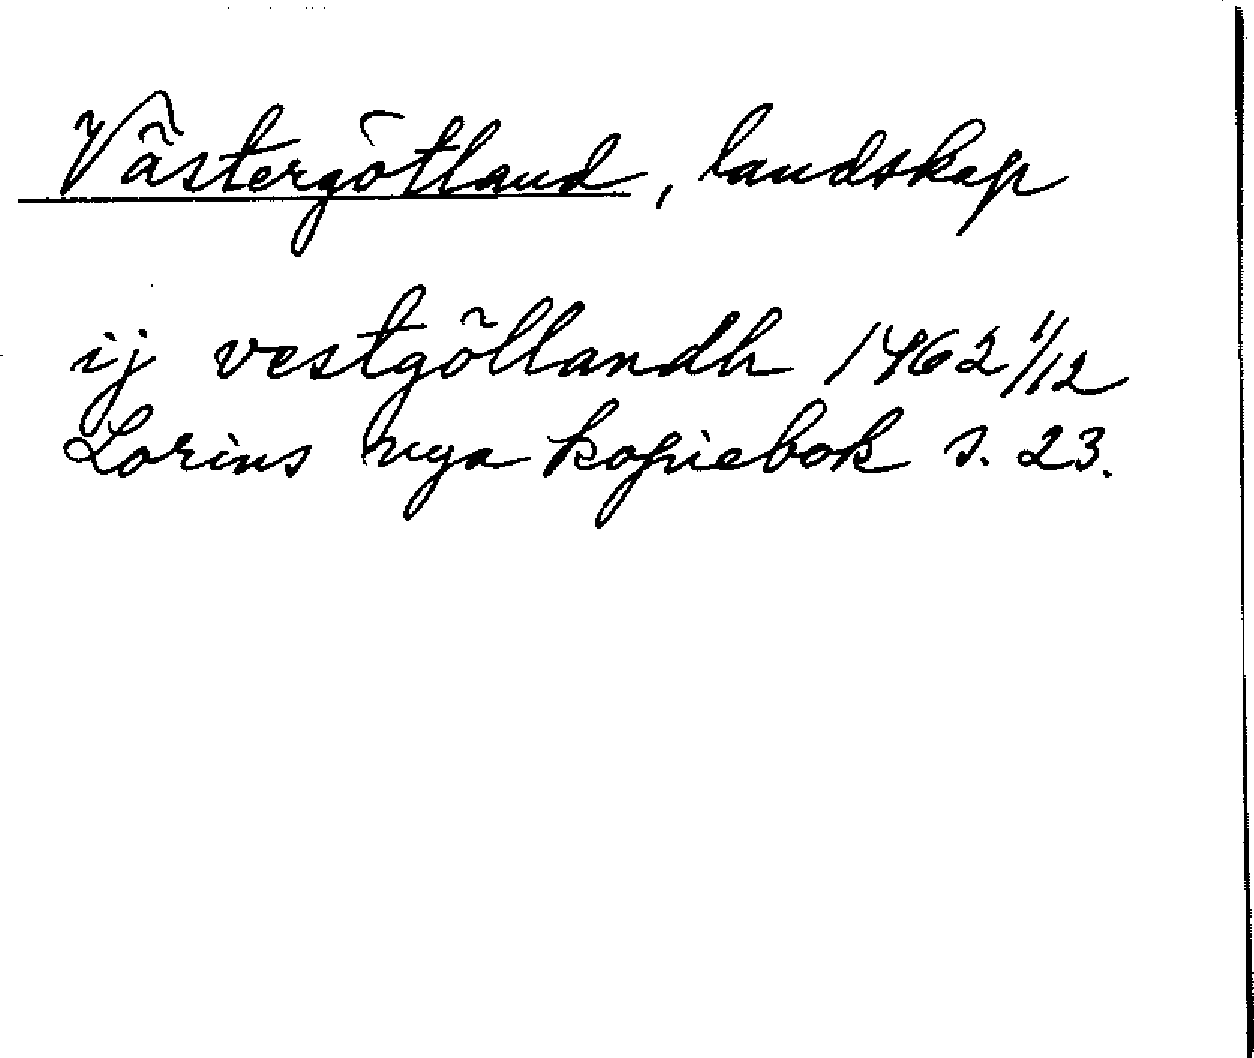 Västergötland, landskap
ij vestgöllandh 1462 1/12
Lorins nya kopiebok s. 23.